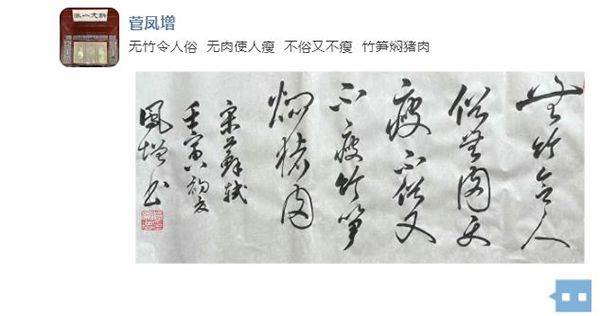 菅凤增
无竹令人俗 无肉使人瘦 不俗又不瘦 竹笋焖猪肉
無竹令人
俗無肉又
瘦不俗又
不瘦竹笋
焖猪肉
宋蘇軾
壬寅初夏
鳳增书